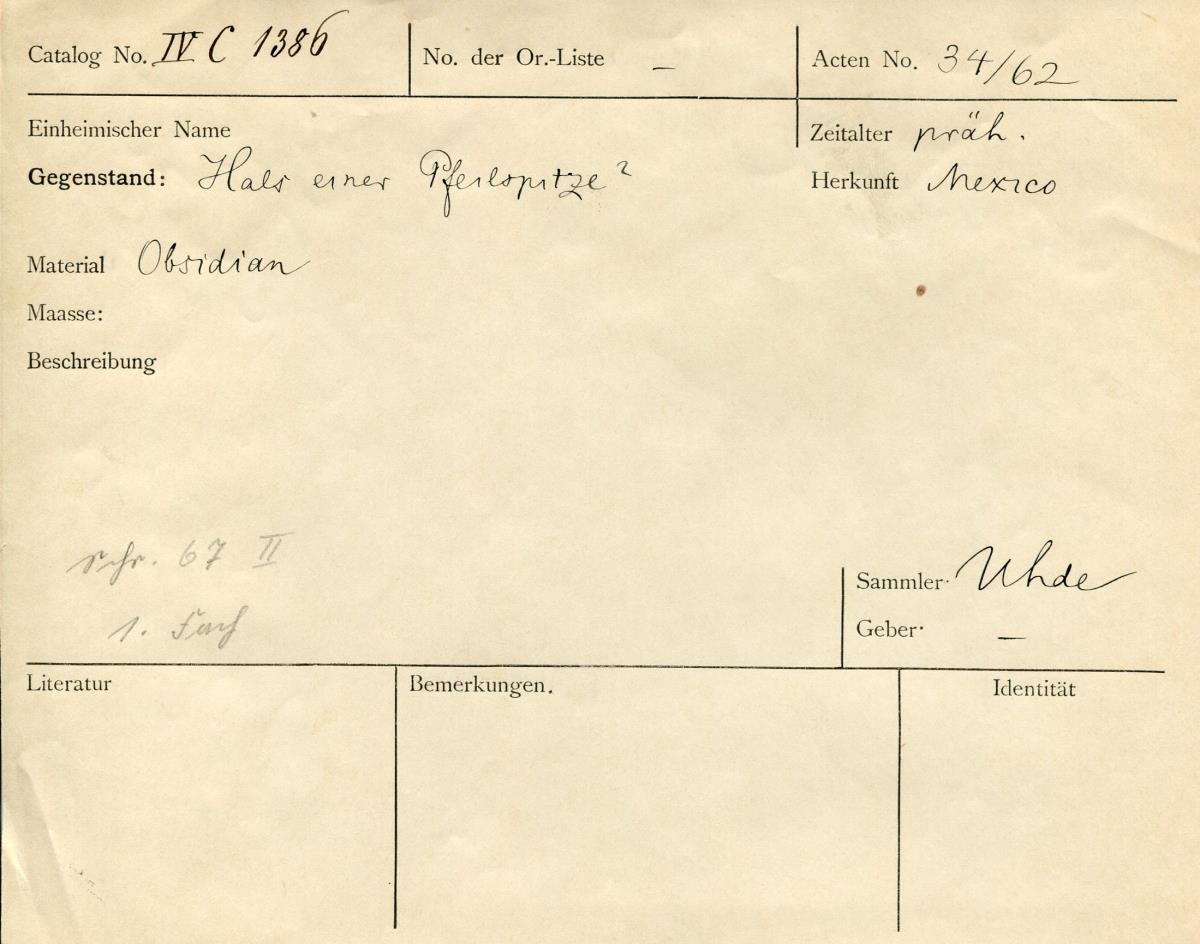 Catalog No. IV C 1386 No. der Or.-Liste — Acten No. 34/62
Einheimischer Name Zeitalter präh.
Gegenstand: Hals einer Pfeilspitze? Herkunft Mexico
Material Obsidian
Maasse:
Beschreibung
Schr. 67 II
Sammler· Uhde
1. Fach
Geber· —
Literatur Bemerkungen. Identität